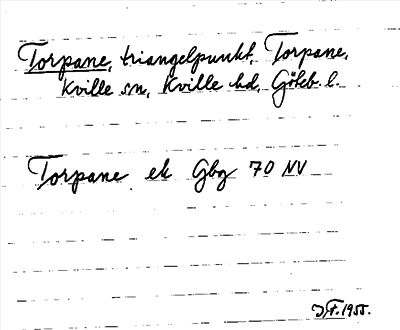 Torpane, triangelpunkt, Torpane,
Kville sn, Kville hd, Göteb. l.
Torpane ek Gbg 70 NV
1955.